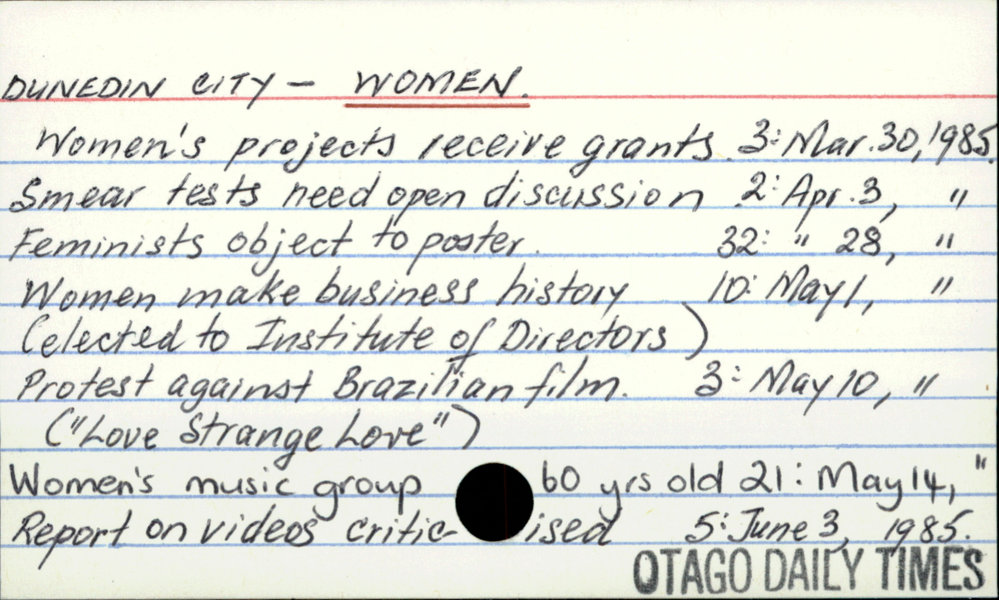 DUNEDIN CITY - WOMEN.
Women's projects receive grants. 3: Mar. 30, 1985.
Smear tests need open discussion 2: Apr. 3, "
Feminists object to poster. 32: " 28, "
Women make business history 10: May 1, "
(elected to Institute of Directors)
Protest against Brazilian film. 3: May 10, "
("Love Strange Love")
Women's music group 60 yrs old 21: May 14, "
Report on videos critic- ised 5: June 3, 1985.
OTAGO DAILY TIMES